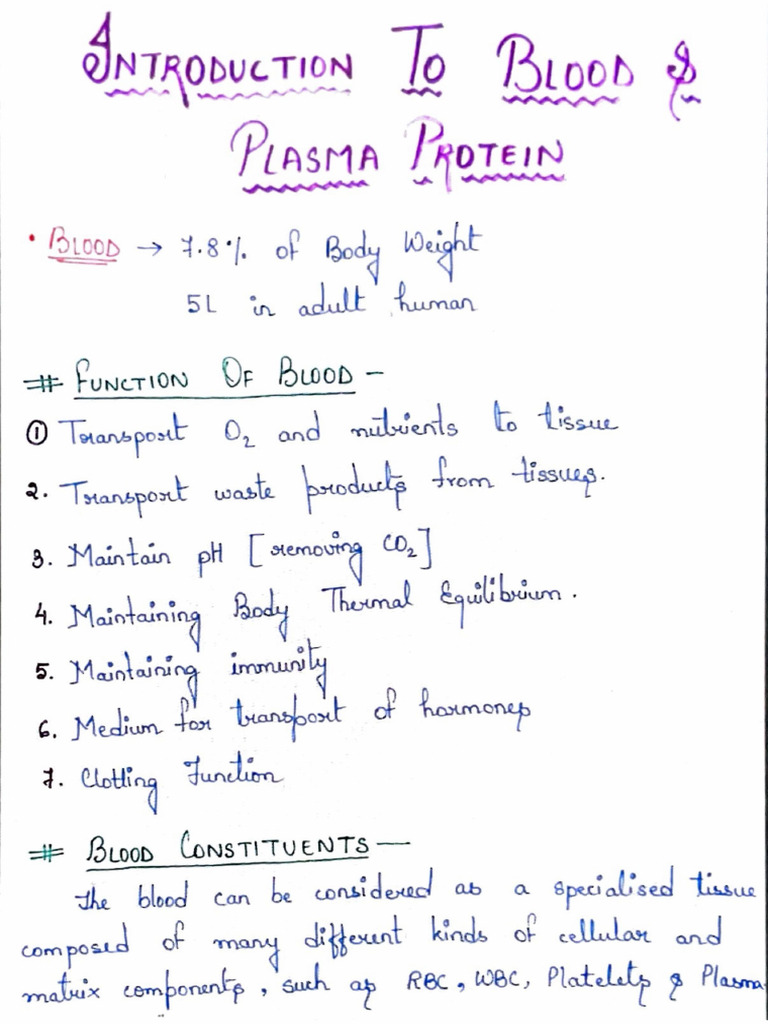 INTRODUCTION TO BLOOD &
PLASMA PROTEIN
• BLOOD → 7.8% of Body Weight
5L in adult human
# FUNCTION OF BLOOD –
① Transport O₂ and nutrients to tissue
2. Transport waste products from tissues.
3. Maintain pH [removing CO₂]
4. Maintaining Body Thermal Equilibrium.
5. Maintaining immunity
6. Medium for transport of harmones
7. Clotting Function
# BLOOD CONSTITUENTS —
The blood can be considered as a specialised tissue
composed of many different kinds of cellular and
matrix components, such as RBC, WBC, Platelets & Plasma